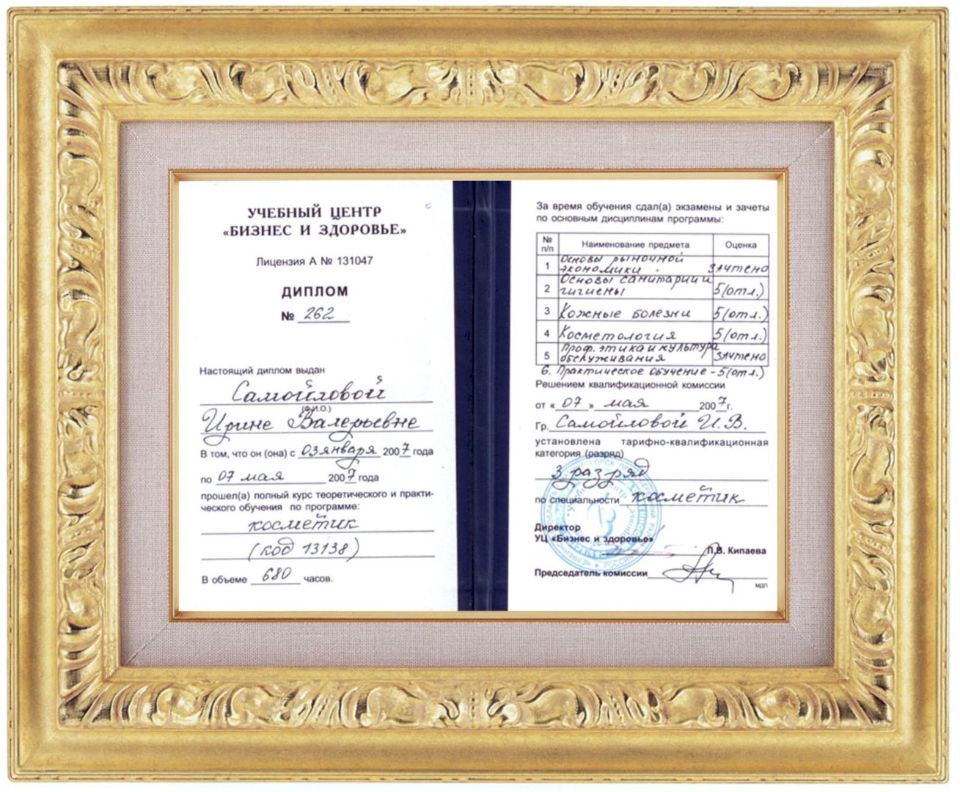 УЧЕБНЫЙ ЦЕНТР
«БИЗНЕС И ЗДОРОВЬЕ»
Лицензия А № 131047
ДИПЛОМ
№ 262
Настоящий диплом выдан
Самойловой
(Ф.И.О.)
Ирине Валерьевне
В том, что он (она) с 03 января 2007 года
по 07 мая 2007 года
прошел(а) полный курс теоретического и практи-
ческого обучения по программе:
косметик
(код 13138)
В объеме 680 часов.
За время обучения сдал(а) экзамены и зачеты
по основным дисциплинам программы:
№ п/п Наименование предмета Оценка
1 Основы рыночной экономики зачтено
2 Основы санитарии и гигиены 5(отл.)
3 Кожные болезни 5(отл.)
4 Косметология 5(отл.)
5 Проф. этика и культура обслуживания зачтено
6. Практическое обучение - 5(отл.)
Решением квалификационной комиссии
от «07» мая 2007г.
Гр. Самойловой И.В.
установлена тарифно-квалификационная
категория (разряд)
3 разряд
по специальности косметик
Директор
УЦ «Бизнес и здоровье»
Л.В. Кипаева
Председатель комиссии
МДП